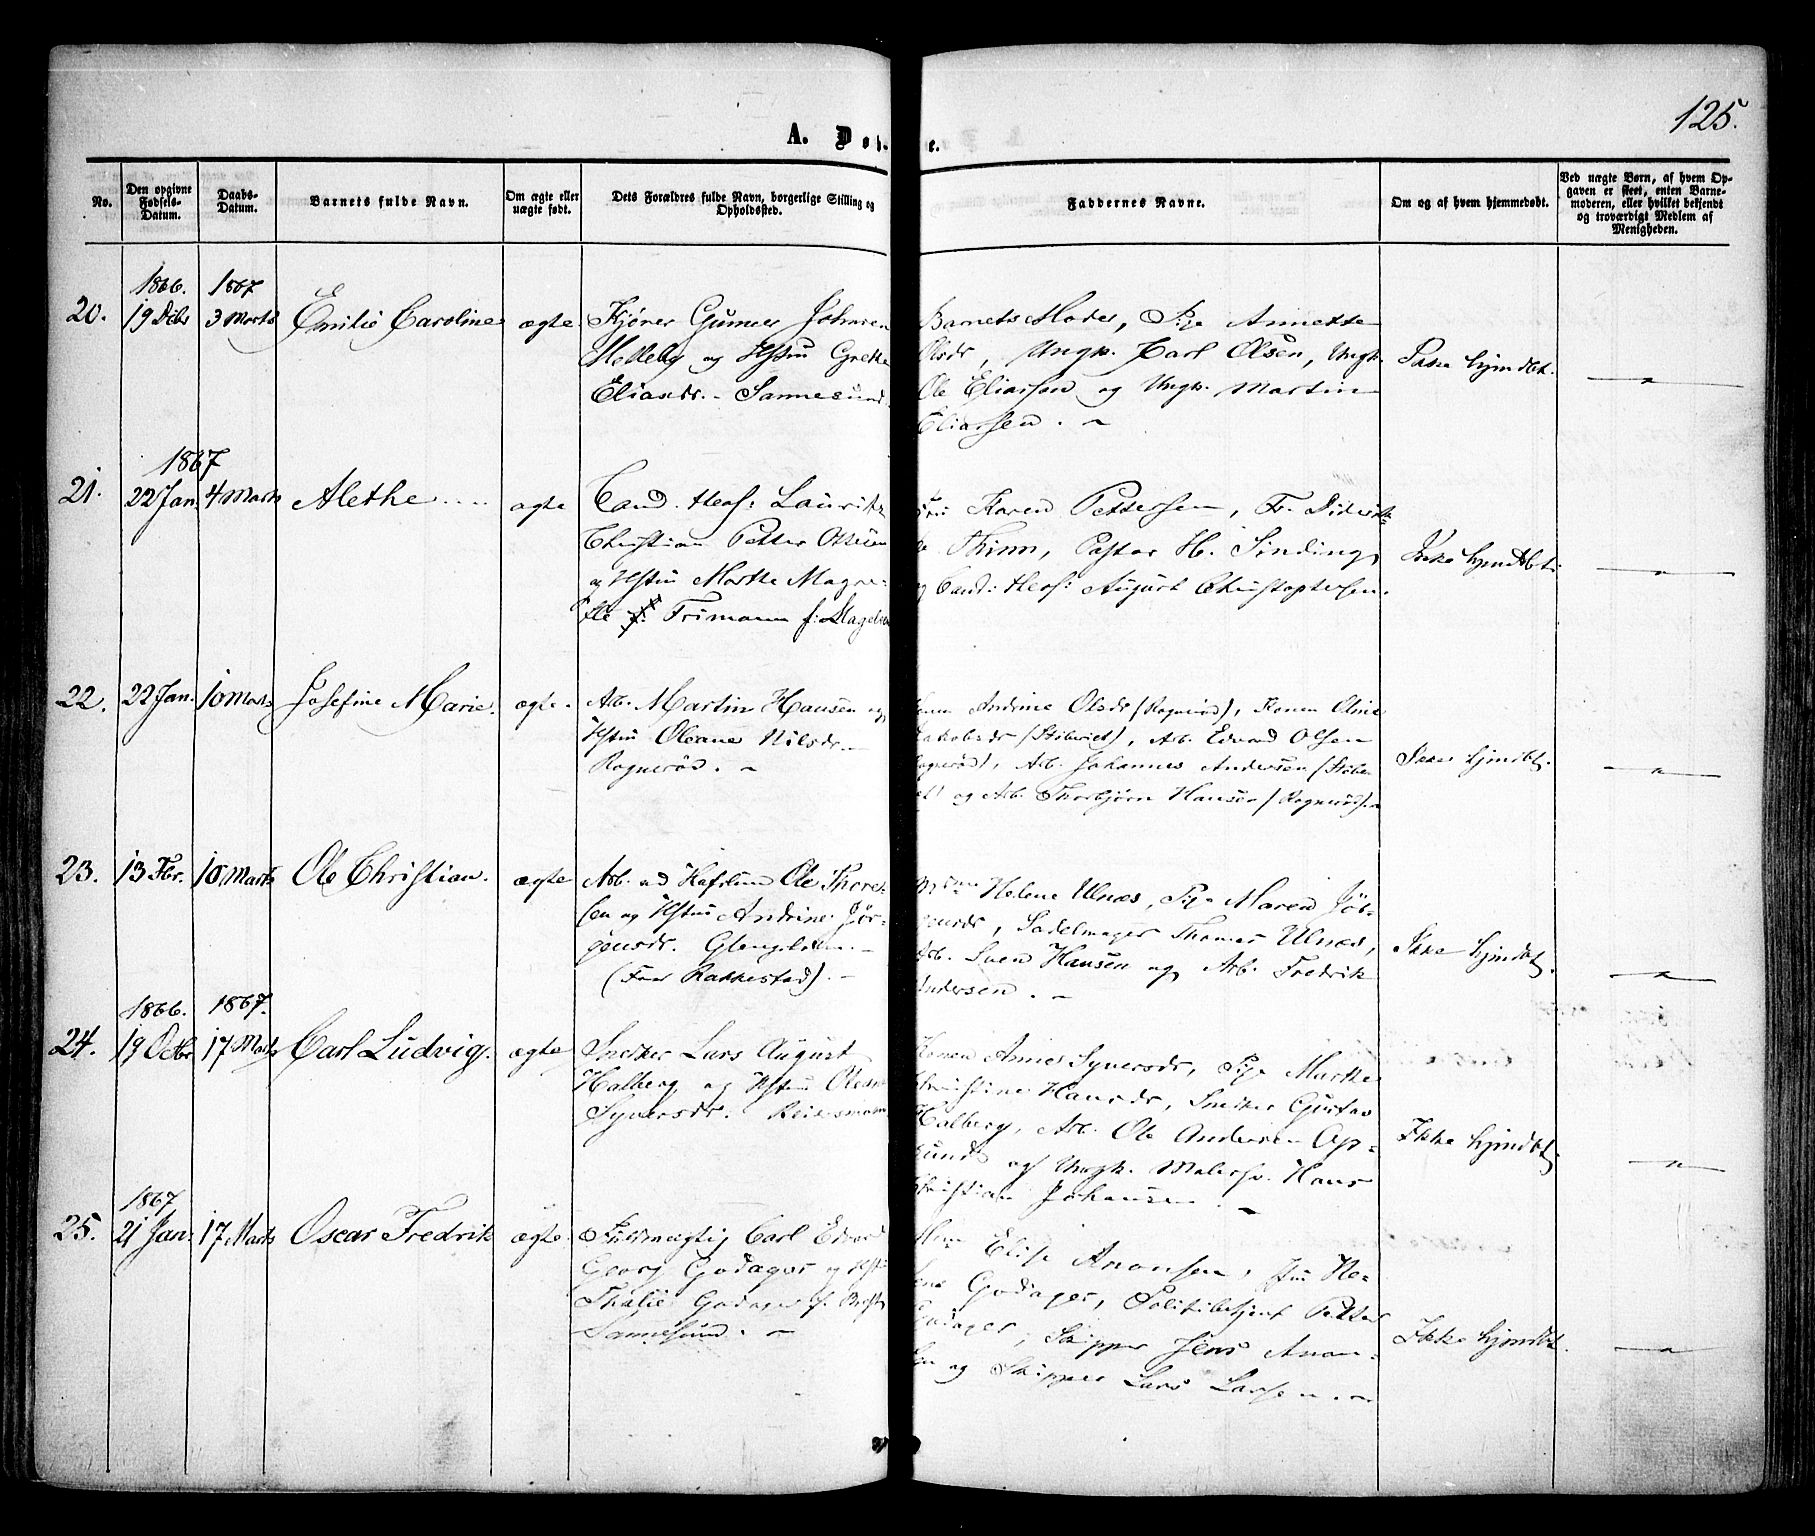 125.
A. Døb- e.
No.
Den opgivne Fødsels-Datum.
Daabs-Datum.
Barnets fulde Navn.
Om ægte eller uægte født.
Dets Forældres fulde Navn, borgerlige Stilling og Opholdssted.
Faddernes Navne.
Om og af hvem hjemmedøbt.
Ved uægte Børn, af hvem Opgaven er skeet, enten Barnemoderen, eller hvilket bekjendt og troværdigt Medlem af Menigheden.
1866. 1867
20. 19 Dcbr 3 Marts Emilie Caroline ægte
Gunner Johnsen
og Hstru Grethe
Eliasdr. - Sannesund
Barnets Moder, Pige Annette
Olsdr, Ungk. Carl Olsen, Ungk.
Ole Eliassen og Ungk. Martin
Eliassen. -
Ikke hjmdbt.
1867
21. 22 Jan. 4 Marts Alethe ægte
Cand. theol: Lauritz
Christian Petter
og Hstru Marthe Magne-
f: Trimann f:
Karen Pettersen, Fr.
Thinn, Pastor H. Sinding,
og Cand: theol: August Christophersen.
Ikke hjmdbt.
22. 22 Jan. 10 Marts Josefine Marie. ægte.
Arb. Martin Hansen og
Hstru Oleane Nilsdr.
Rognerød. -
Andrine Olsdr (Rognerød), Konen Oline
Jakobsdr, Arb. Edvard Olsen
Arb. Johannes Andersen
og Arb. Thorbjørn Hansen
Ikke hjmdbt.
23. 13 Fbr. 10 Marts Ole Christian. ægte
Arb. ved Hafslund Ole Thore-
sen og Hstru Andrine Jør-
gensdr.
(Fra Rakkestad). -
Helene Ulnæs, Pige Maren Jør-
gensdr, Sadelmager Thomas Ulnæs,
Arb. Sven Hansen og Arb. Fredrik
Andersen. -
Ikke hjmdbt.
1866. 1867.
24. 19 Octbr 17 Marts Carl Ludvig. ægte
Snekker Lars August
Halberg og Hstru
Syversdr.
Konen Syversdr, Pige Marthe
Christine Hansdr, Snekker Gustav
Halberg, Arb. Ole Andersen
og Ungk. Malersv. Hans
Christian Johansen. -
Ikke hjmdbt.
1867
25. 21 Jan. 17 Marts Oscar Fredrik ægte.
Carl Edvard
Georg Godager og Hstru
Thalie Godager f.
Sannesund. -
Elise Aronsen,
Godager, Politibetjent Petter
Godager, Skipper Jens Aron-
sen og Skipper Lars Larsen. -
Ikke hjmdbt.